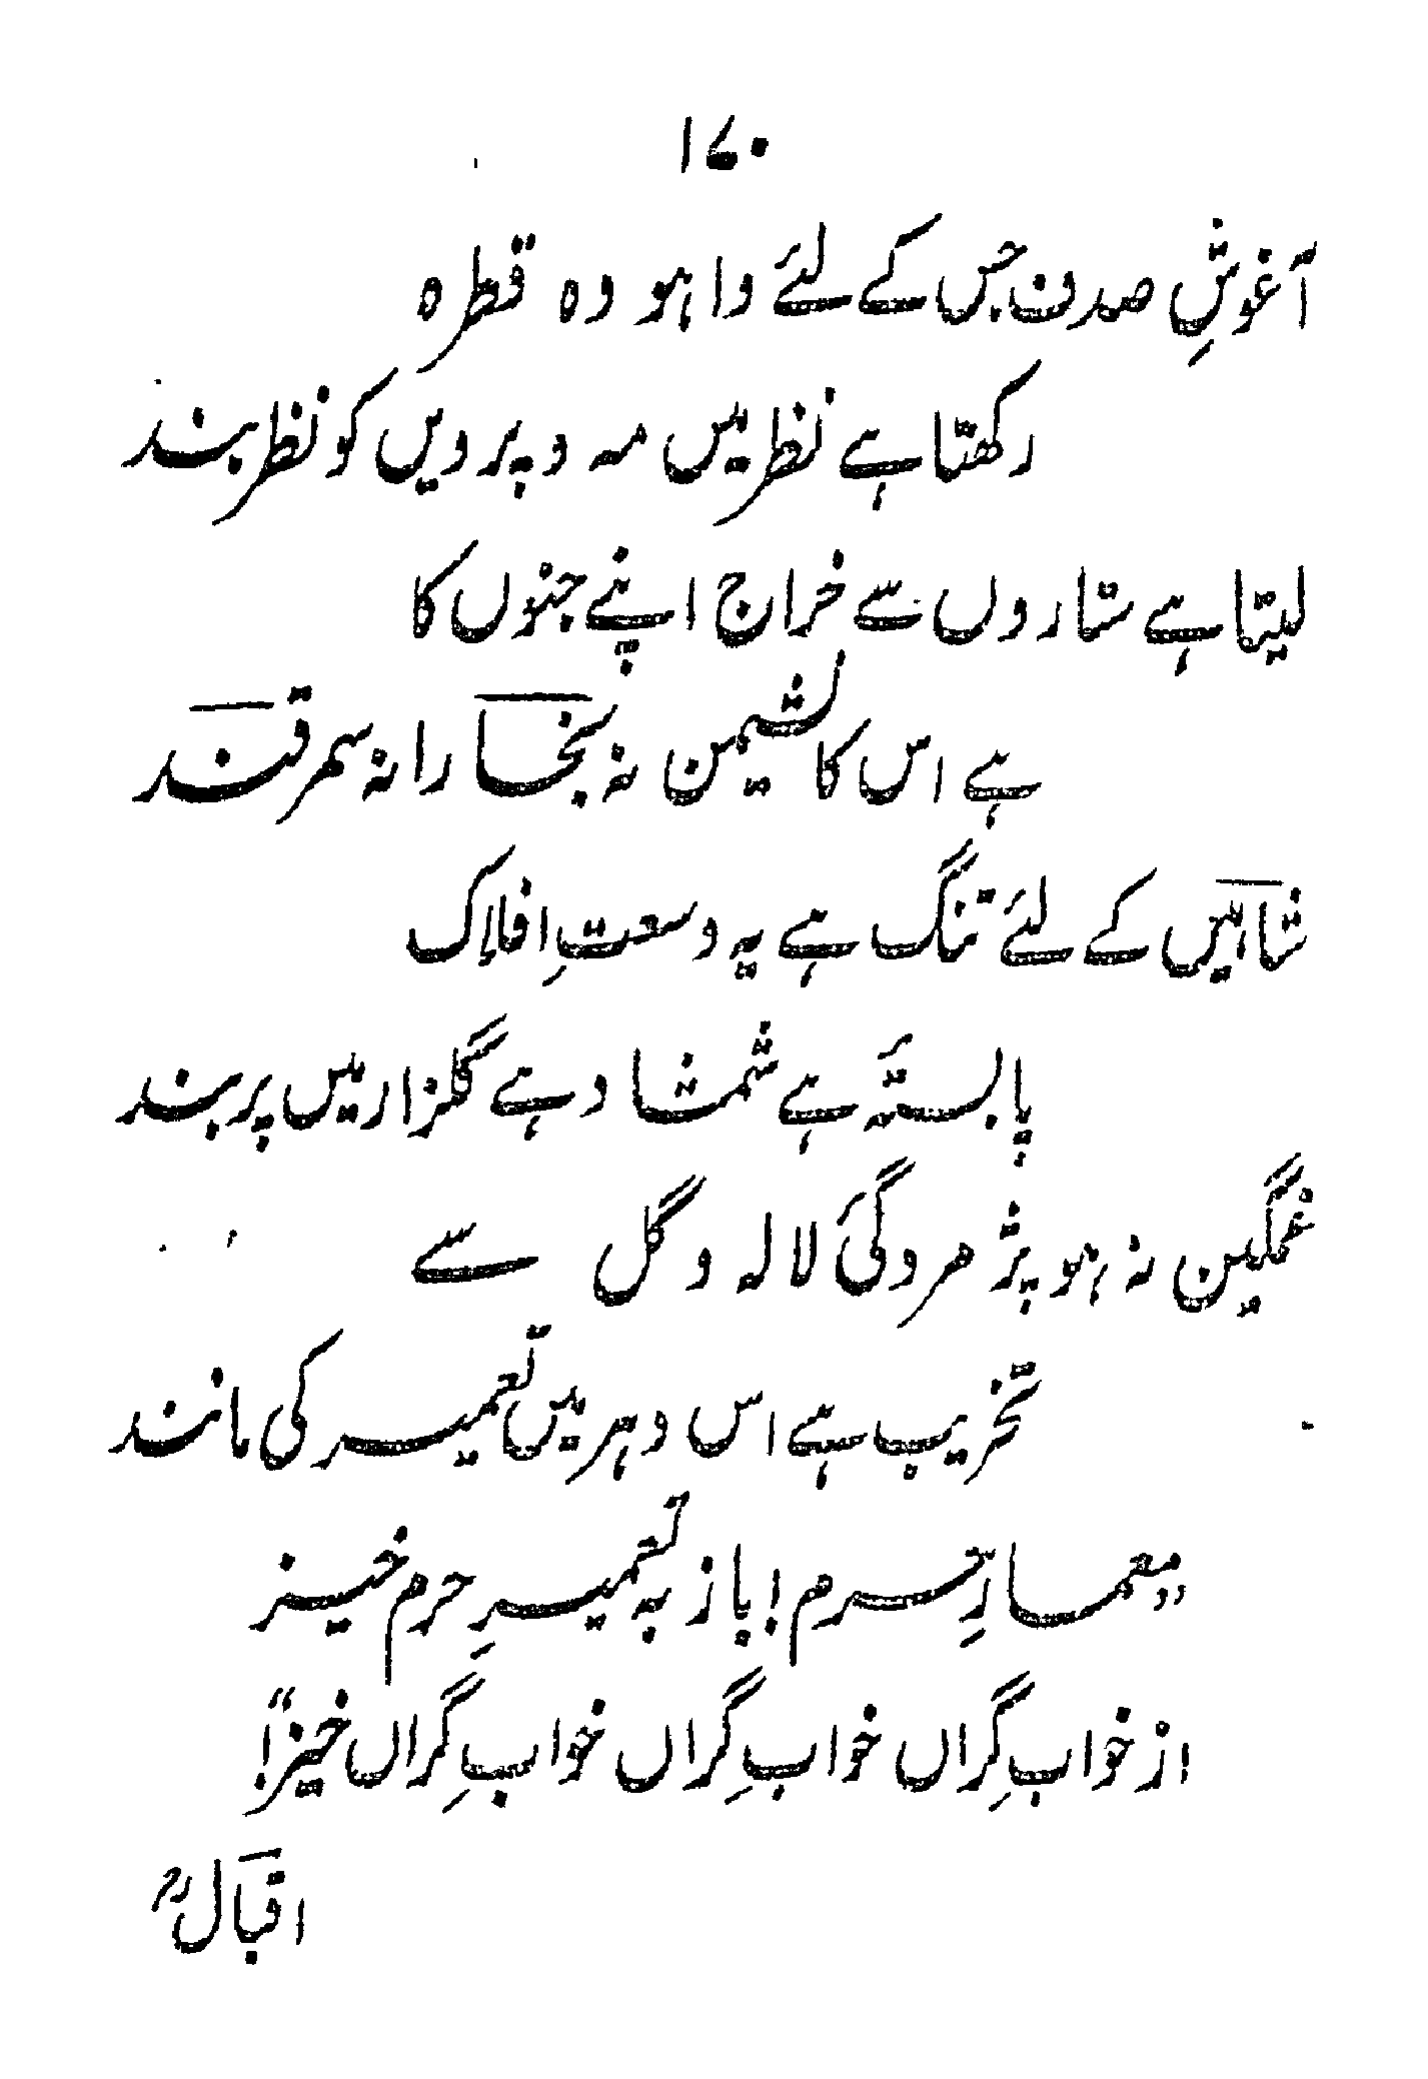 ۱۷۰
آغوشِ صدف جس کے لئے وا ہو وہ قطرہ
رکھتا ہے نظر میں مہ و پرویں کو نظر بند
لیتا ہے ستاروں سے خراج اپنے جنوں کا
ہے اس کا نشیمن نہ بخارا نہ سمرقند
شاہیں کے لئے تنگ ہے یہ وسعتِ افلاک
پابستۂ ہے شمشاد ہے گلزار میں پر بند
غمگین نہ ہو پژمردگیٔ لالہ و گل سے
تخریب ہے اس دہر میں تعمیر کی مانند
”معمارِ حرم! باز بہ تعمیرِ حرم خیز
از خوابِ گراں خوابِ گراں خوابِ گراں خیز!“
اقبالؒ